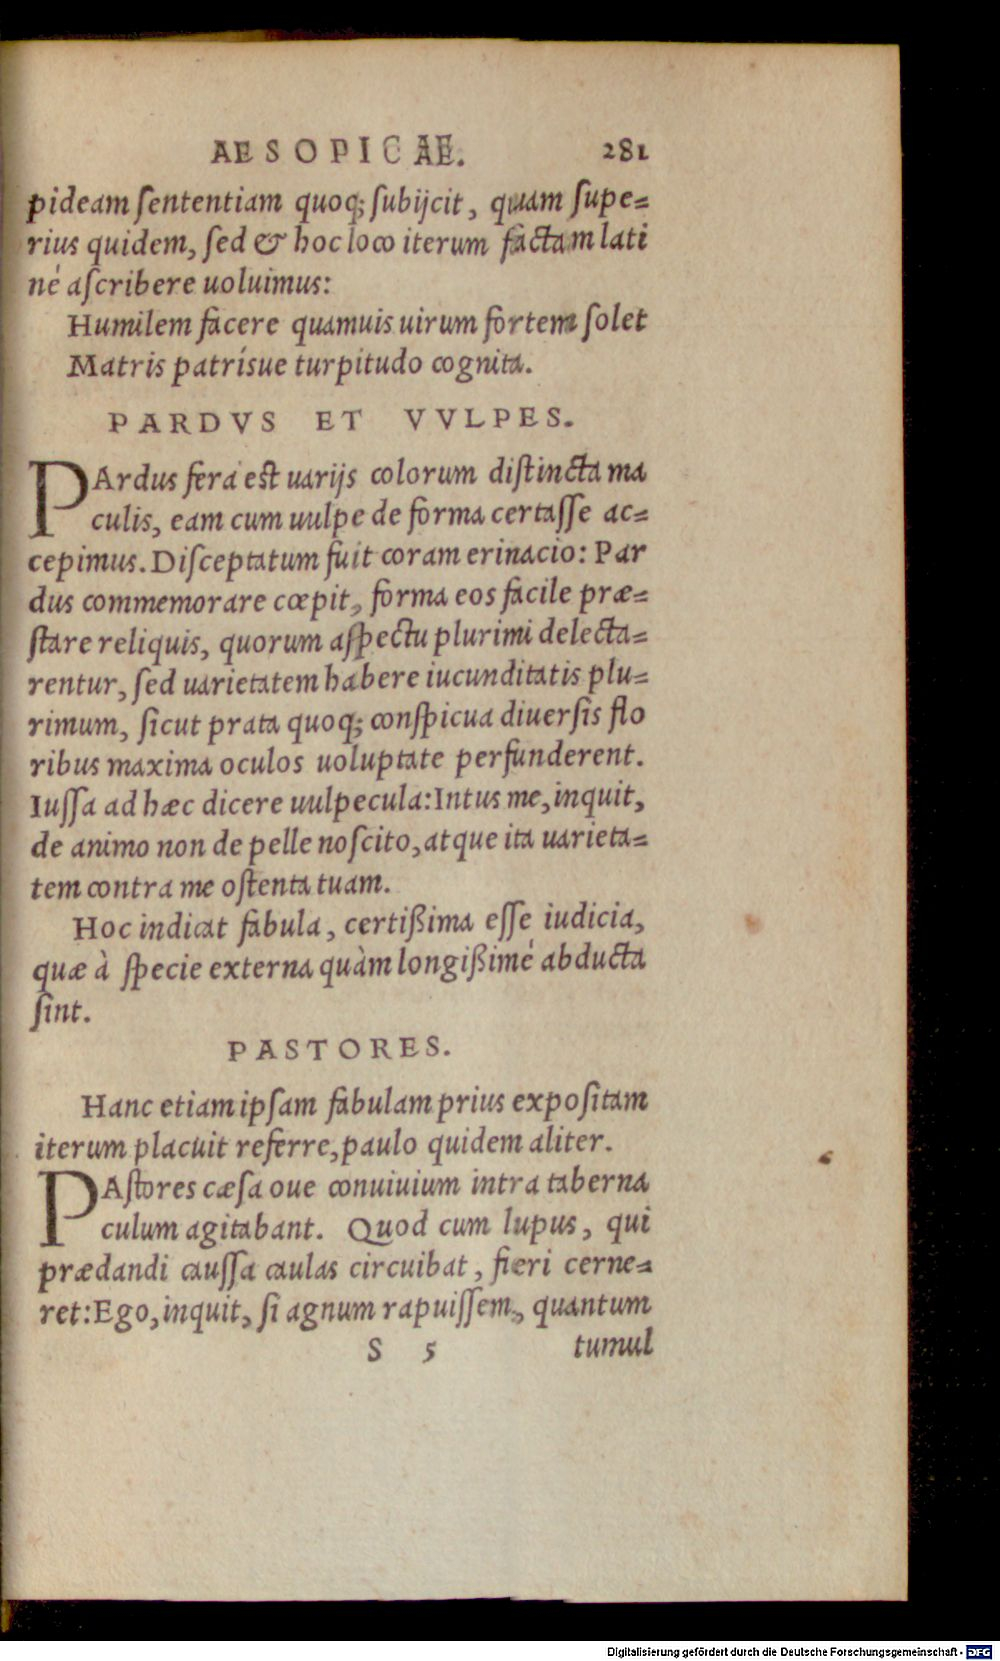 AESOPICAE. 281
pideam ſententiam quoq; ſubijcit, quam ſupe=
rius quidem, ſed & hoc loco iterum factam lati
né aſcribere uoluimus:
Humilem facere quamuis uirum fortem ſolet
Matris patrísue turpitudo cognita.
PARDVS ET VVLPES.
PArdus fera est uarijs colorum diſtincta ma
culis, eam cum uulpe de forma certaſſe ac=
cepimus. Diſceptatum fuit coram erinacio: Par
dus commemorare cœpit, forma eos facile præ=
ſtare reliquis, quorum aſpectu plurimi delecta=
rentur, ſed uarietatem habere iucunditatis plu=
rimum, ſicut prata quoq; conſpicua diuerſis flo
ribus maxima oculos uoluptate perfunderent.
Iuſſa ad hæc dicere uulpecula: Intus me, inquit,
de animo non de pelle noſcito, atque ita uarieta=
tem contra me oſtenta tuam.
Hoc indicat fabula, certißima eſſe iudicia,
quæ à ſpecie externa quàm longißimé abducta
ſint.
PASTORES.
Hanc etiam ipſam fabulam prius expoſitam
iterum placuit referre, paulo quidem aliter.
PAſtores cæſa oue conuiuium intra taberna
culum agitabant. Quod cum lupus, qui
prædandi cauſſa caulas circuibat, fieri cerne=
ret: Ego, inquit, ſi agnum rapuiſſem, quantum
S 5 tumul
Digitalisierung gefördert durch die Deutsche Forschungsgemeinschaft - DFG